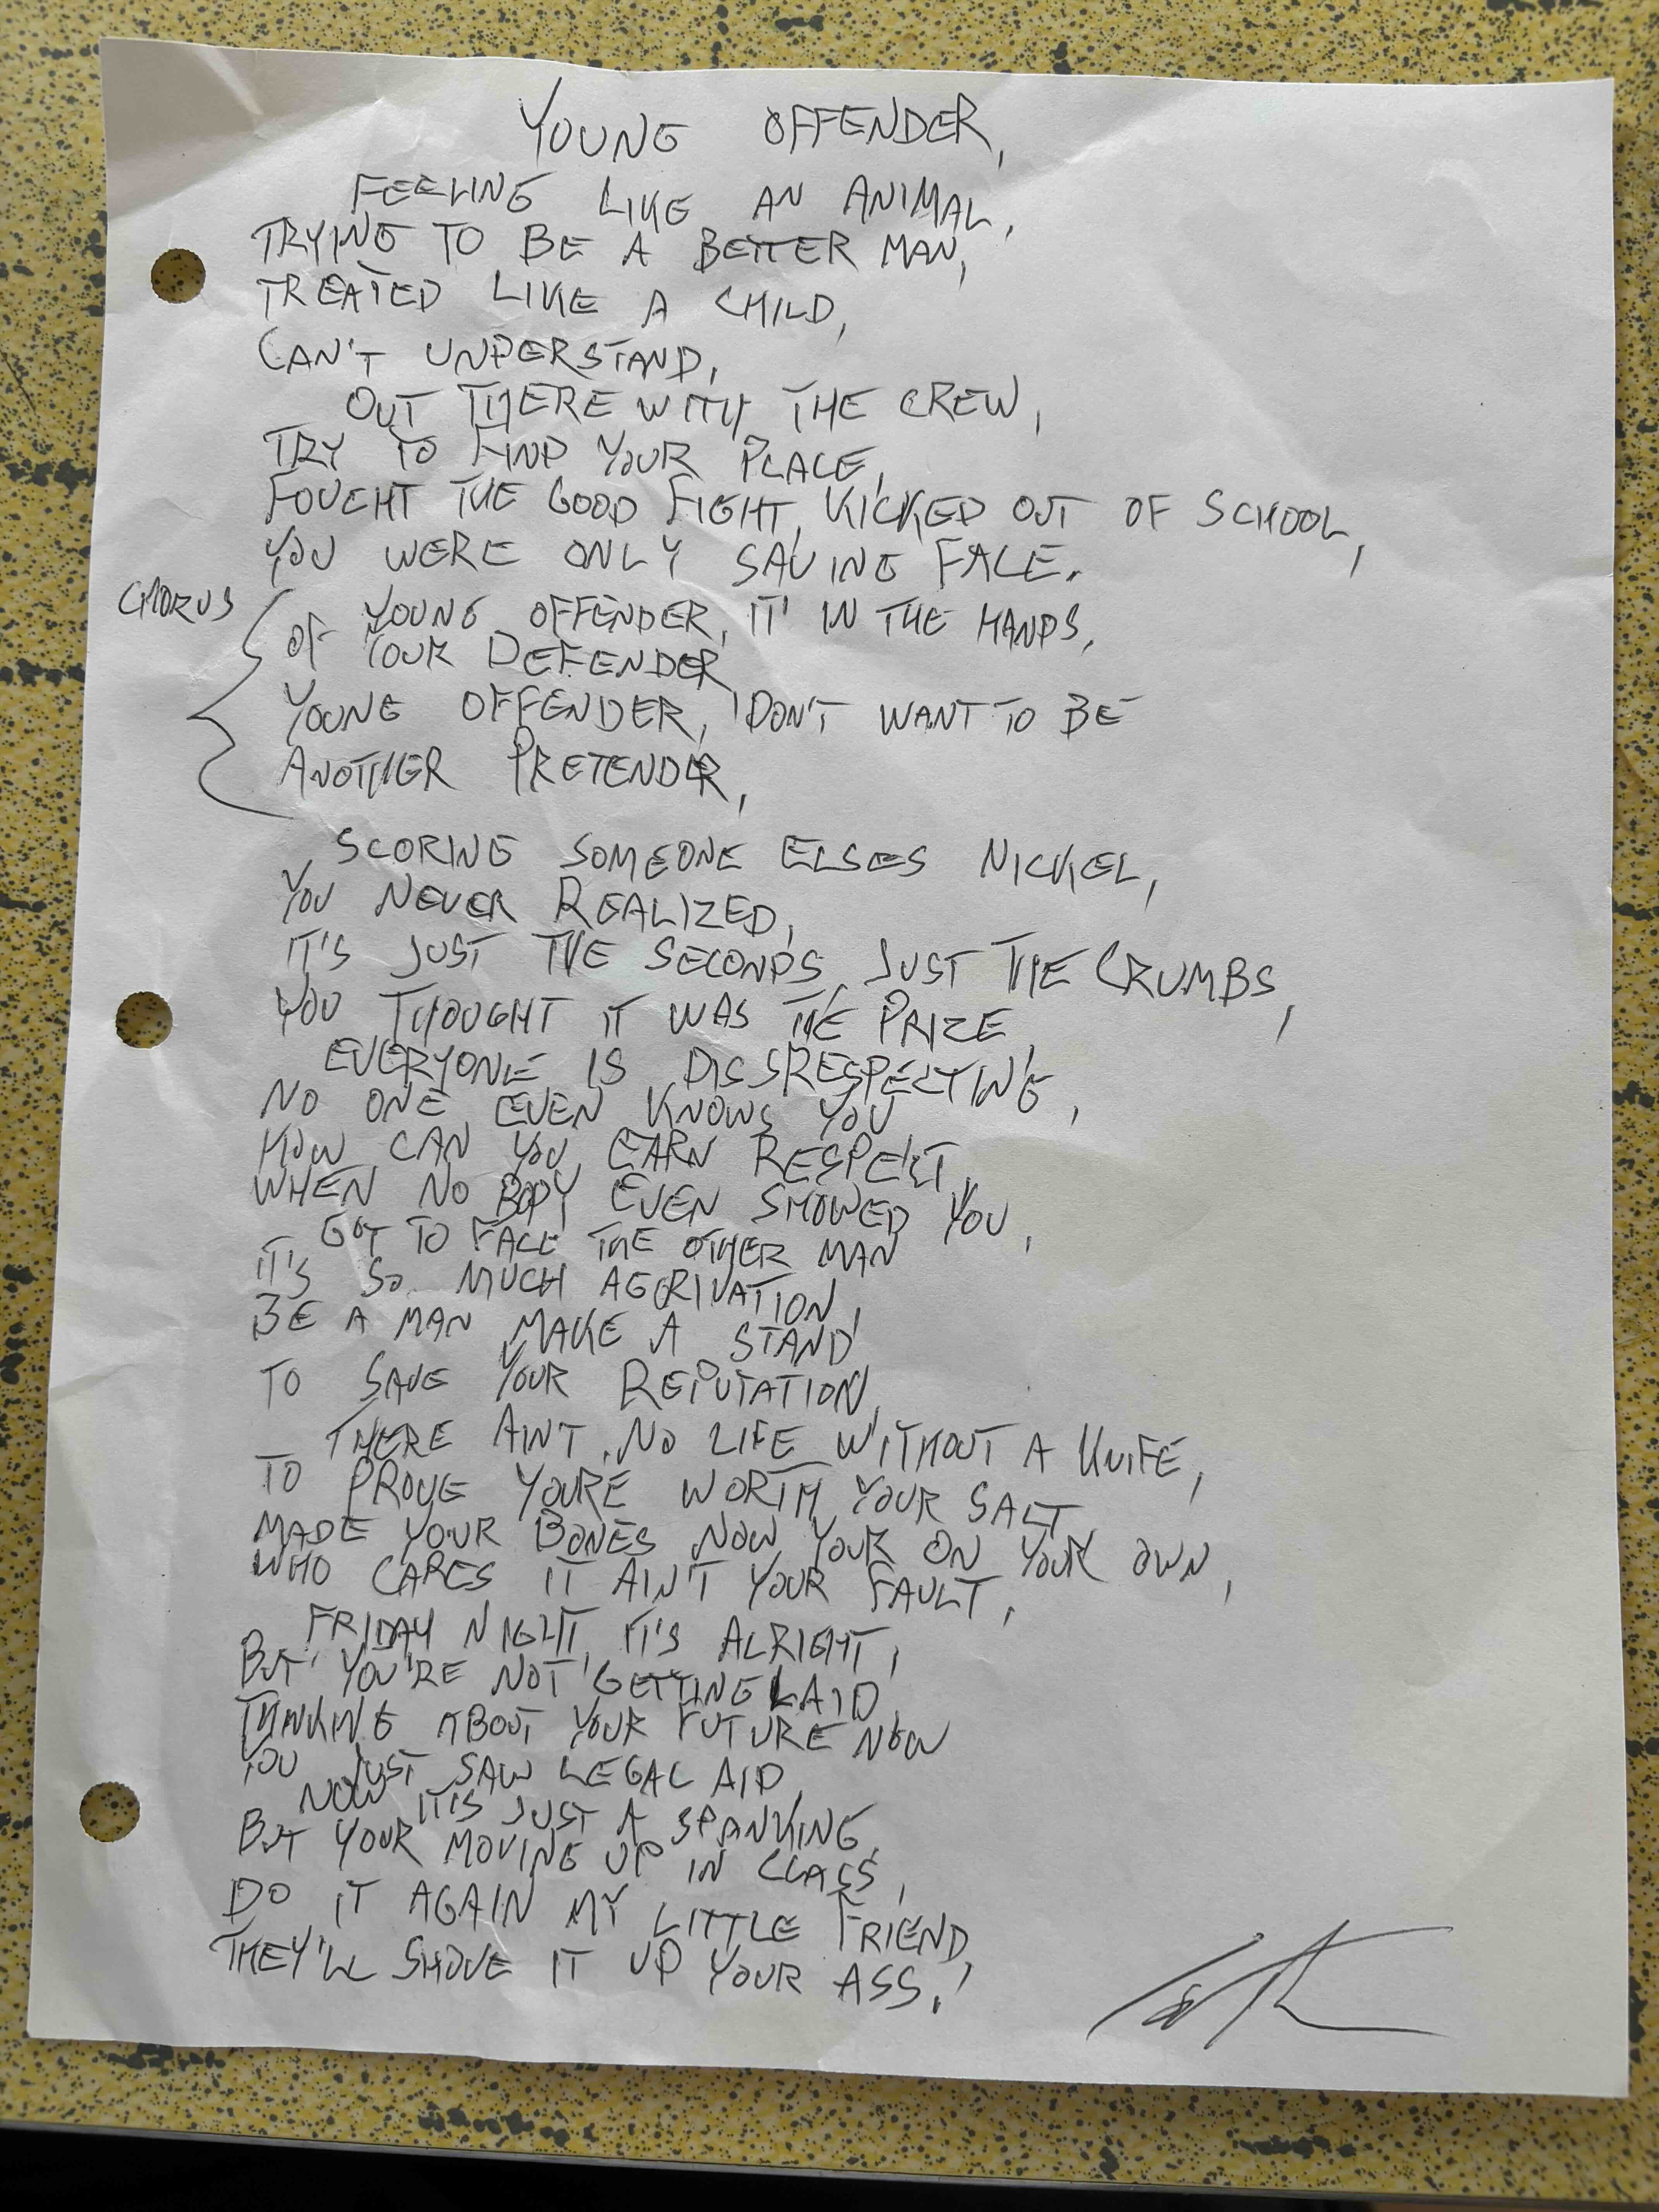 YOUNG OFFENDER,
FEELING LIKE AN ANIMAL,
TRYING TO BE A BETTER MAN,
TREATED LIKE A CHILD,
CAN'T UNDERSTAND,
OUT THERE WITH THE CREW,
TRY TO FIND YOUR PLACE,
FOUGHT THE GOOD FIGHT, KICKED OUT OF SCHOOL,
YOU WERE ONLY SAVING FACE.
CHORUS
YOUNG OFFENDER, IT' IN THE HANDS,
OF YOUR DEFENDER,
YOUNG OFFENDER, DON'T WANT TO BE
ANOTHER PRETENDER,
SCORING SOMEONE ELSES NICKEL,
YOU NEVER REALIZED,
IT'S JUST THE SECONDS, JUST THE CRUMBS,
YOU THOUGHT IT WAS THE PRIZE,
EVERYONE IS DISSRESPECTING,
NO ONE EVEN KNOWS YOU
HOW CAN YOU EARN RESPECT,
WHEN NO BODY EVEN SHOWED YOU,
GOT TO FACE THE OTHER MAN
IT'S SO MUCH AGGRIVATION,
BE A MAN MAKE A STAND
TO SAVE YOUR REPUTATION,
THERE AIN'T NO LIFE WITHOUT A KNIFE,
TO PROVE YOURE WORTH YOUR SALT
MADE YOUR BONES NOW YOUR ON YOUR OWN,
WHO CARES IT AIN'T YOUR FAULT,
FRIDAY NIGHT, IT'S ALRIGHT,
BUT YOU'RE NOT GETTING LAID,
THINKING ABOUT YOUR FUTURE NOW
YOU JUST SAW LEGAL AID,
NOW IT'S JUST A SPANKING,
BUT YOUR MOVING UP IN CLASS,
DO IT AGAIN MY LITTLE FRIEND,
THEY'LL SHOVE IT UP YOUR ASS.!